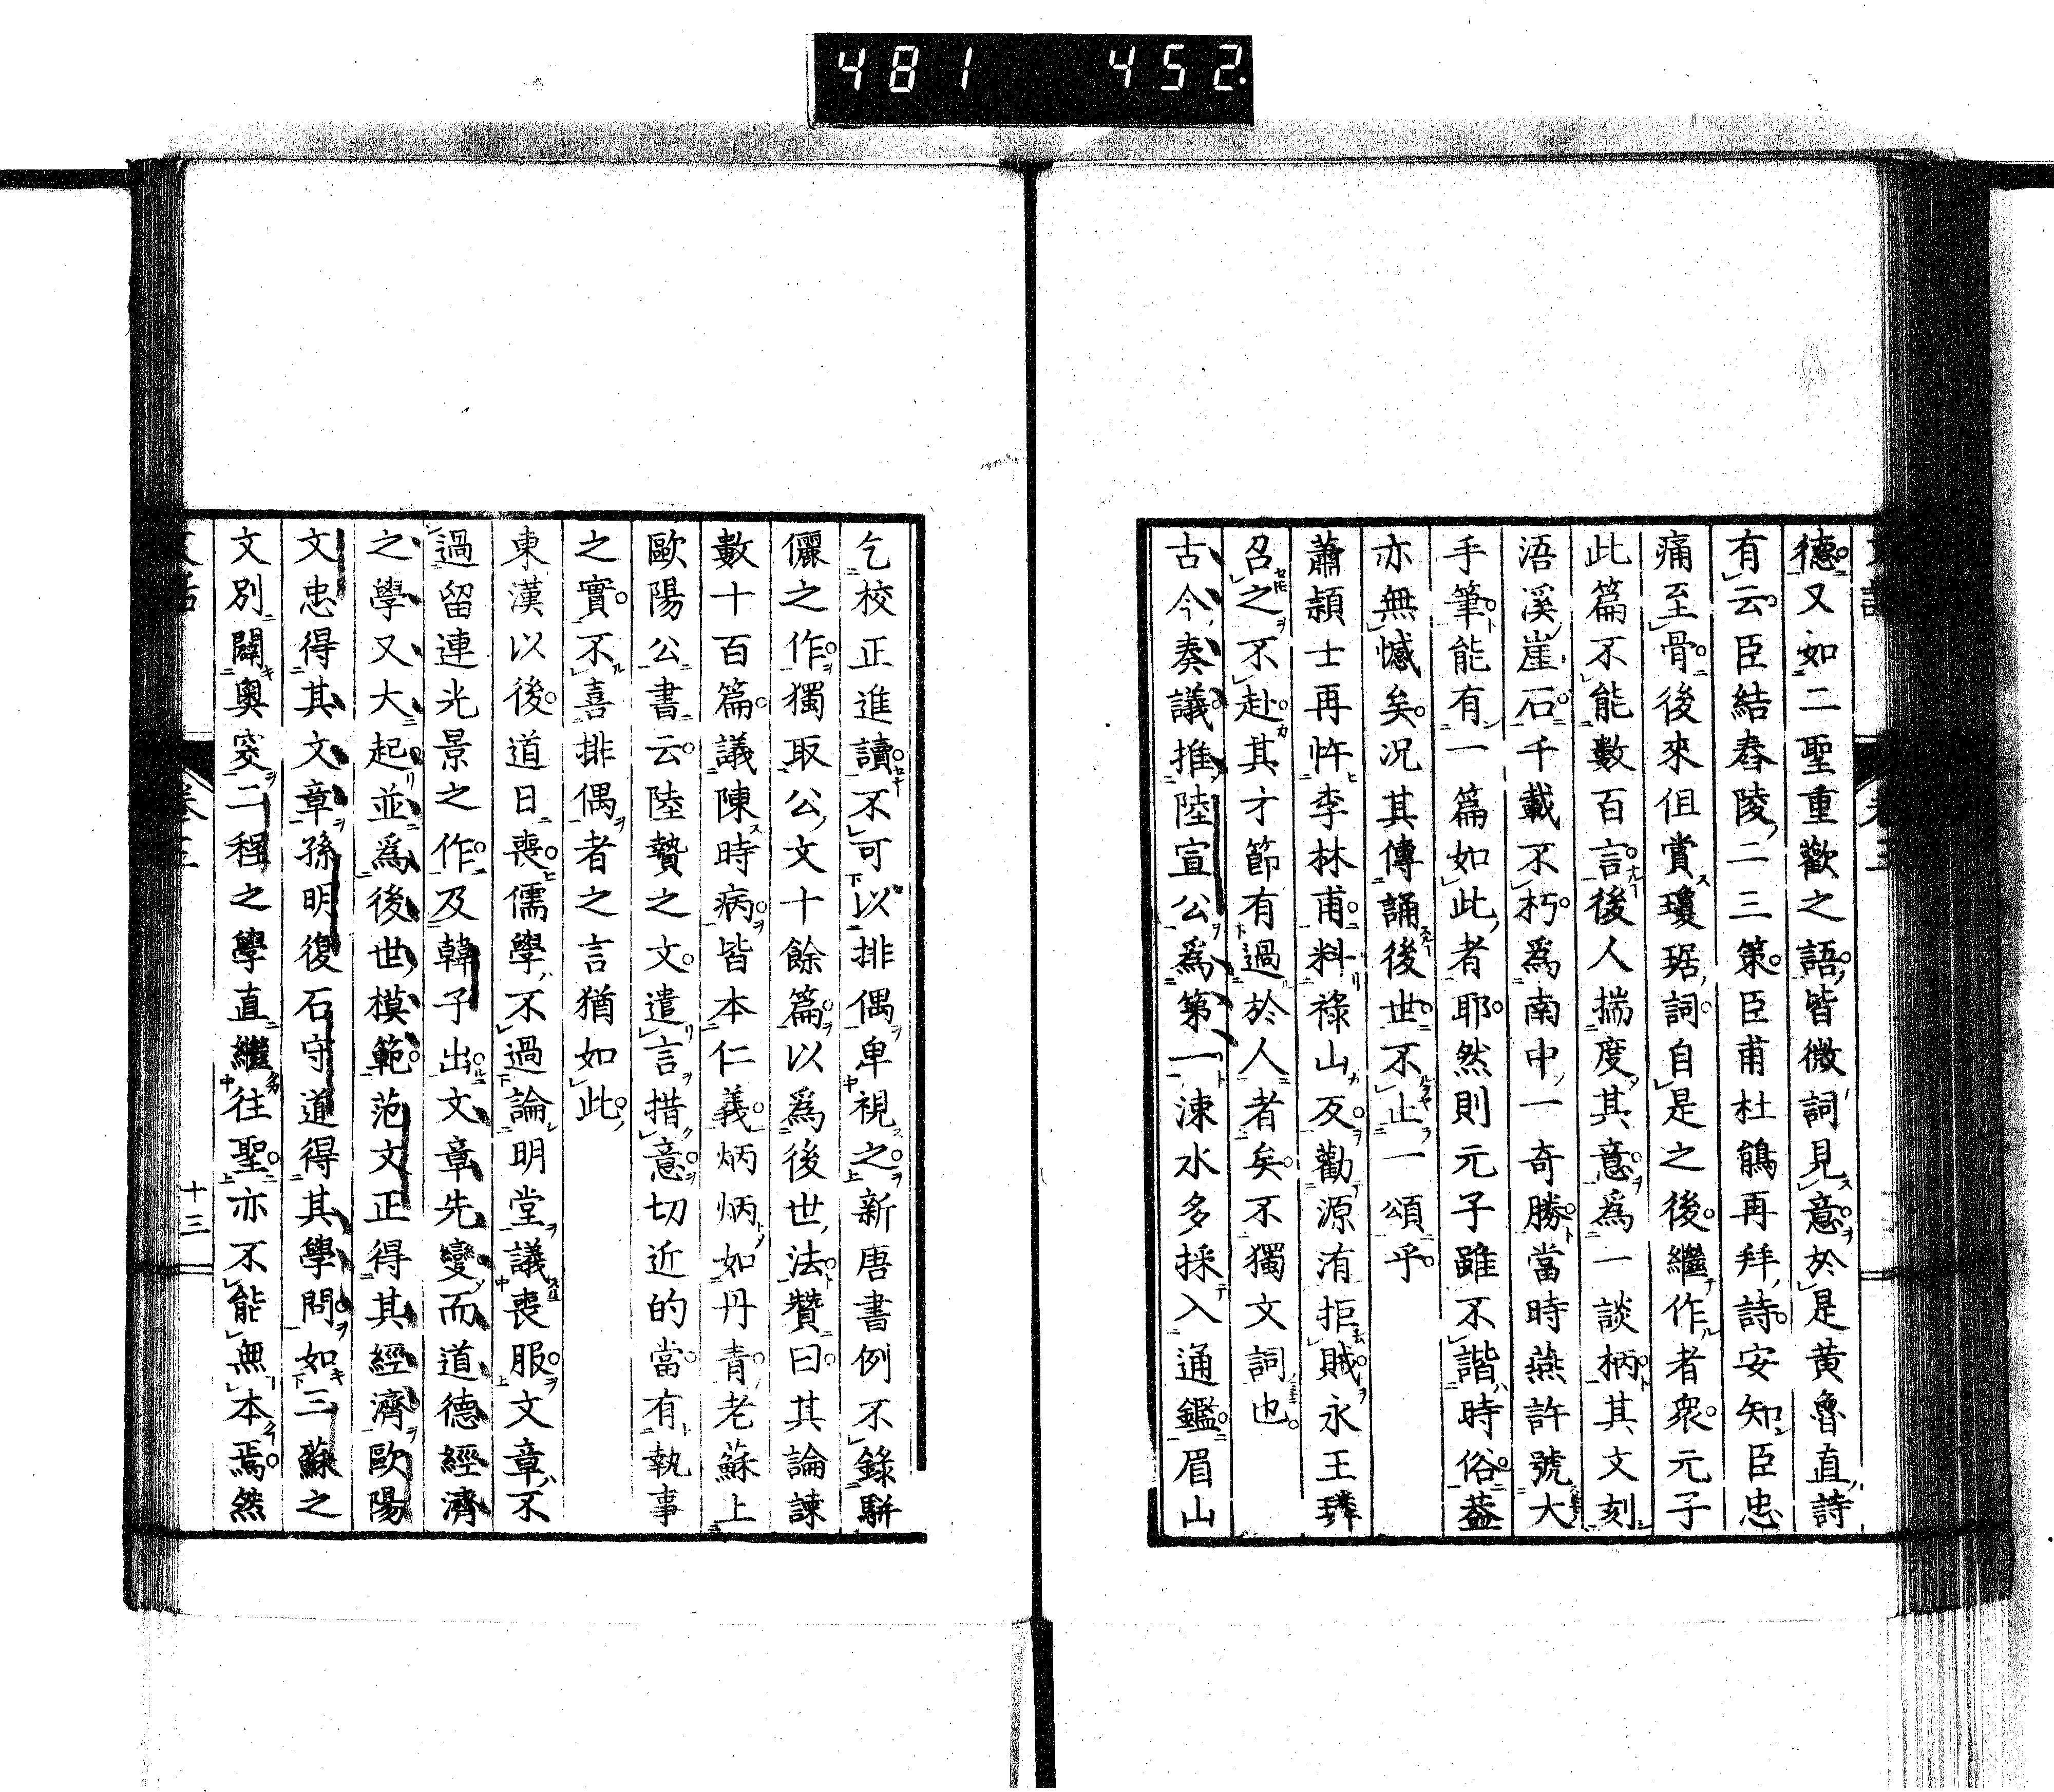 481 452.
德又如二聖重歡之語皆微詞見意於是黄魯直詩
有云臣結舂陵二三策臣甫杜鵑再拜詩安知臣忠
痛至骨後來但賞瓊琚詞自是之後繼作者衆元子
此篇不能數百言後人揣度其意爲一談柄其文刻
浯溪崖石千載不朽爲南中一奇勝當時燕許號大
手筆能有一篇如此者耶然則元子雖不諧時俗蓋
亦無憾矣況其傳誦後世不止一頌乎
蕭頴士再忤李林甫料祿山反勸源洧拒賊永王璘
召之不赴其才節有過於人者矣不獨文詞也
古今奏議推陸宣公爲第一涑水多採入通鑑眉山
乞校正進讀不可以排偶卑視之新唐書例不錄駢
儷之作獨取公文十餘篇以爲後世法贊曰其論諫
數十百篇議陳時病皆本仁義炳炳如丹青老蘇上
歐陽公書云陸贄之文遣言措意切近的當有執事
之實不喜排偶者之言猶如此
東漢以後道日喪儒學不過論明堂議喪服文章不
過留連光景之作及韓子出文章先變而道德經濟
之學又大起並爲後世模範范文正得其經濟歐陽
文忠得其文章孫明復石守道得其學問如三蘇之
文別闢奧窔二程之學直繼往聖亦不能無本焉然
十三